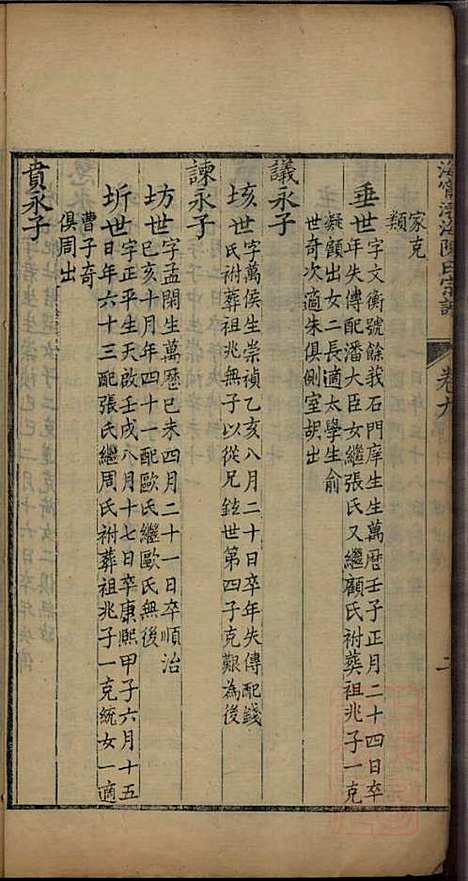 海寧渤海陳氏宗譜
卷九
家克
類
垂世字文衡號餘我石門庠生生萬曆壬子正月二十四日卒
年失傳配潘大臣女繼張氏又繼顧氏祔葬祖兆子一克
凝顧出女二長適太學生俞
世奇次適朱俱側室胡出
議永子
垓世字萬侯生崇禎乙亥八月二十日卒年失傳配錢
氏祔葬祖兆無子以從兄鉉世第四子克艱為後
諫永子
坊世字孟閑生萬曆已未四月二十一日卒順治
已亥十月年四十一配歐氏繼歐氏無後
圻世字正平生天啟壬戌八月十七日卒康熙甲子六月十五
日年六十三配張氏繼周氏祔葬祖兆子一克統女一適
曹子奇
俱周出
貴永子